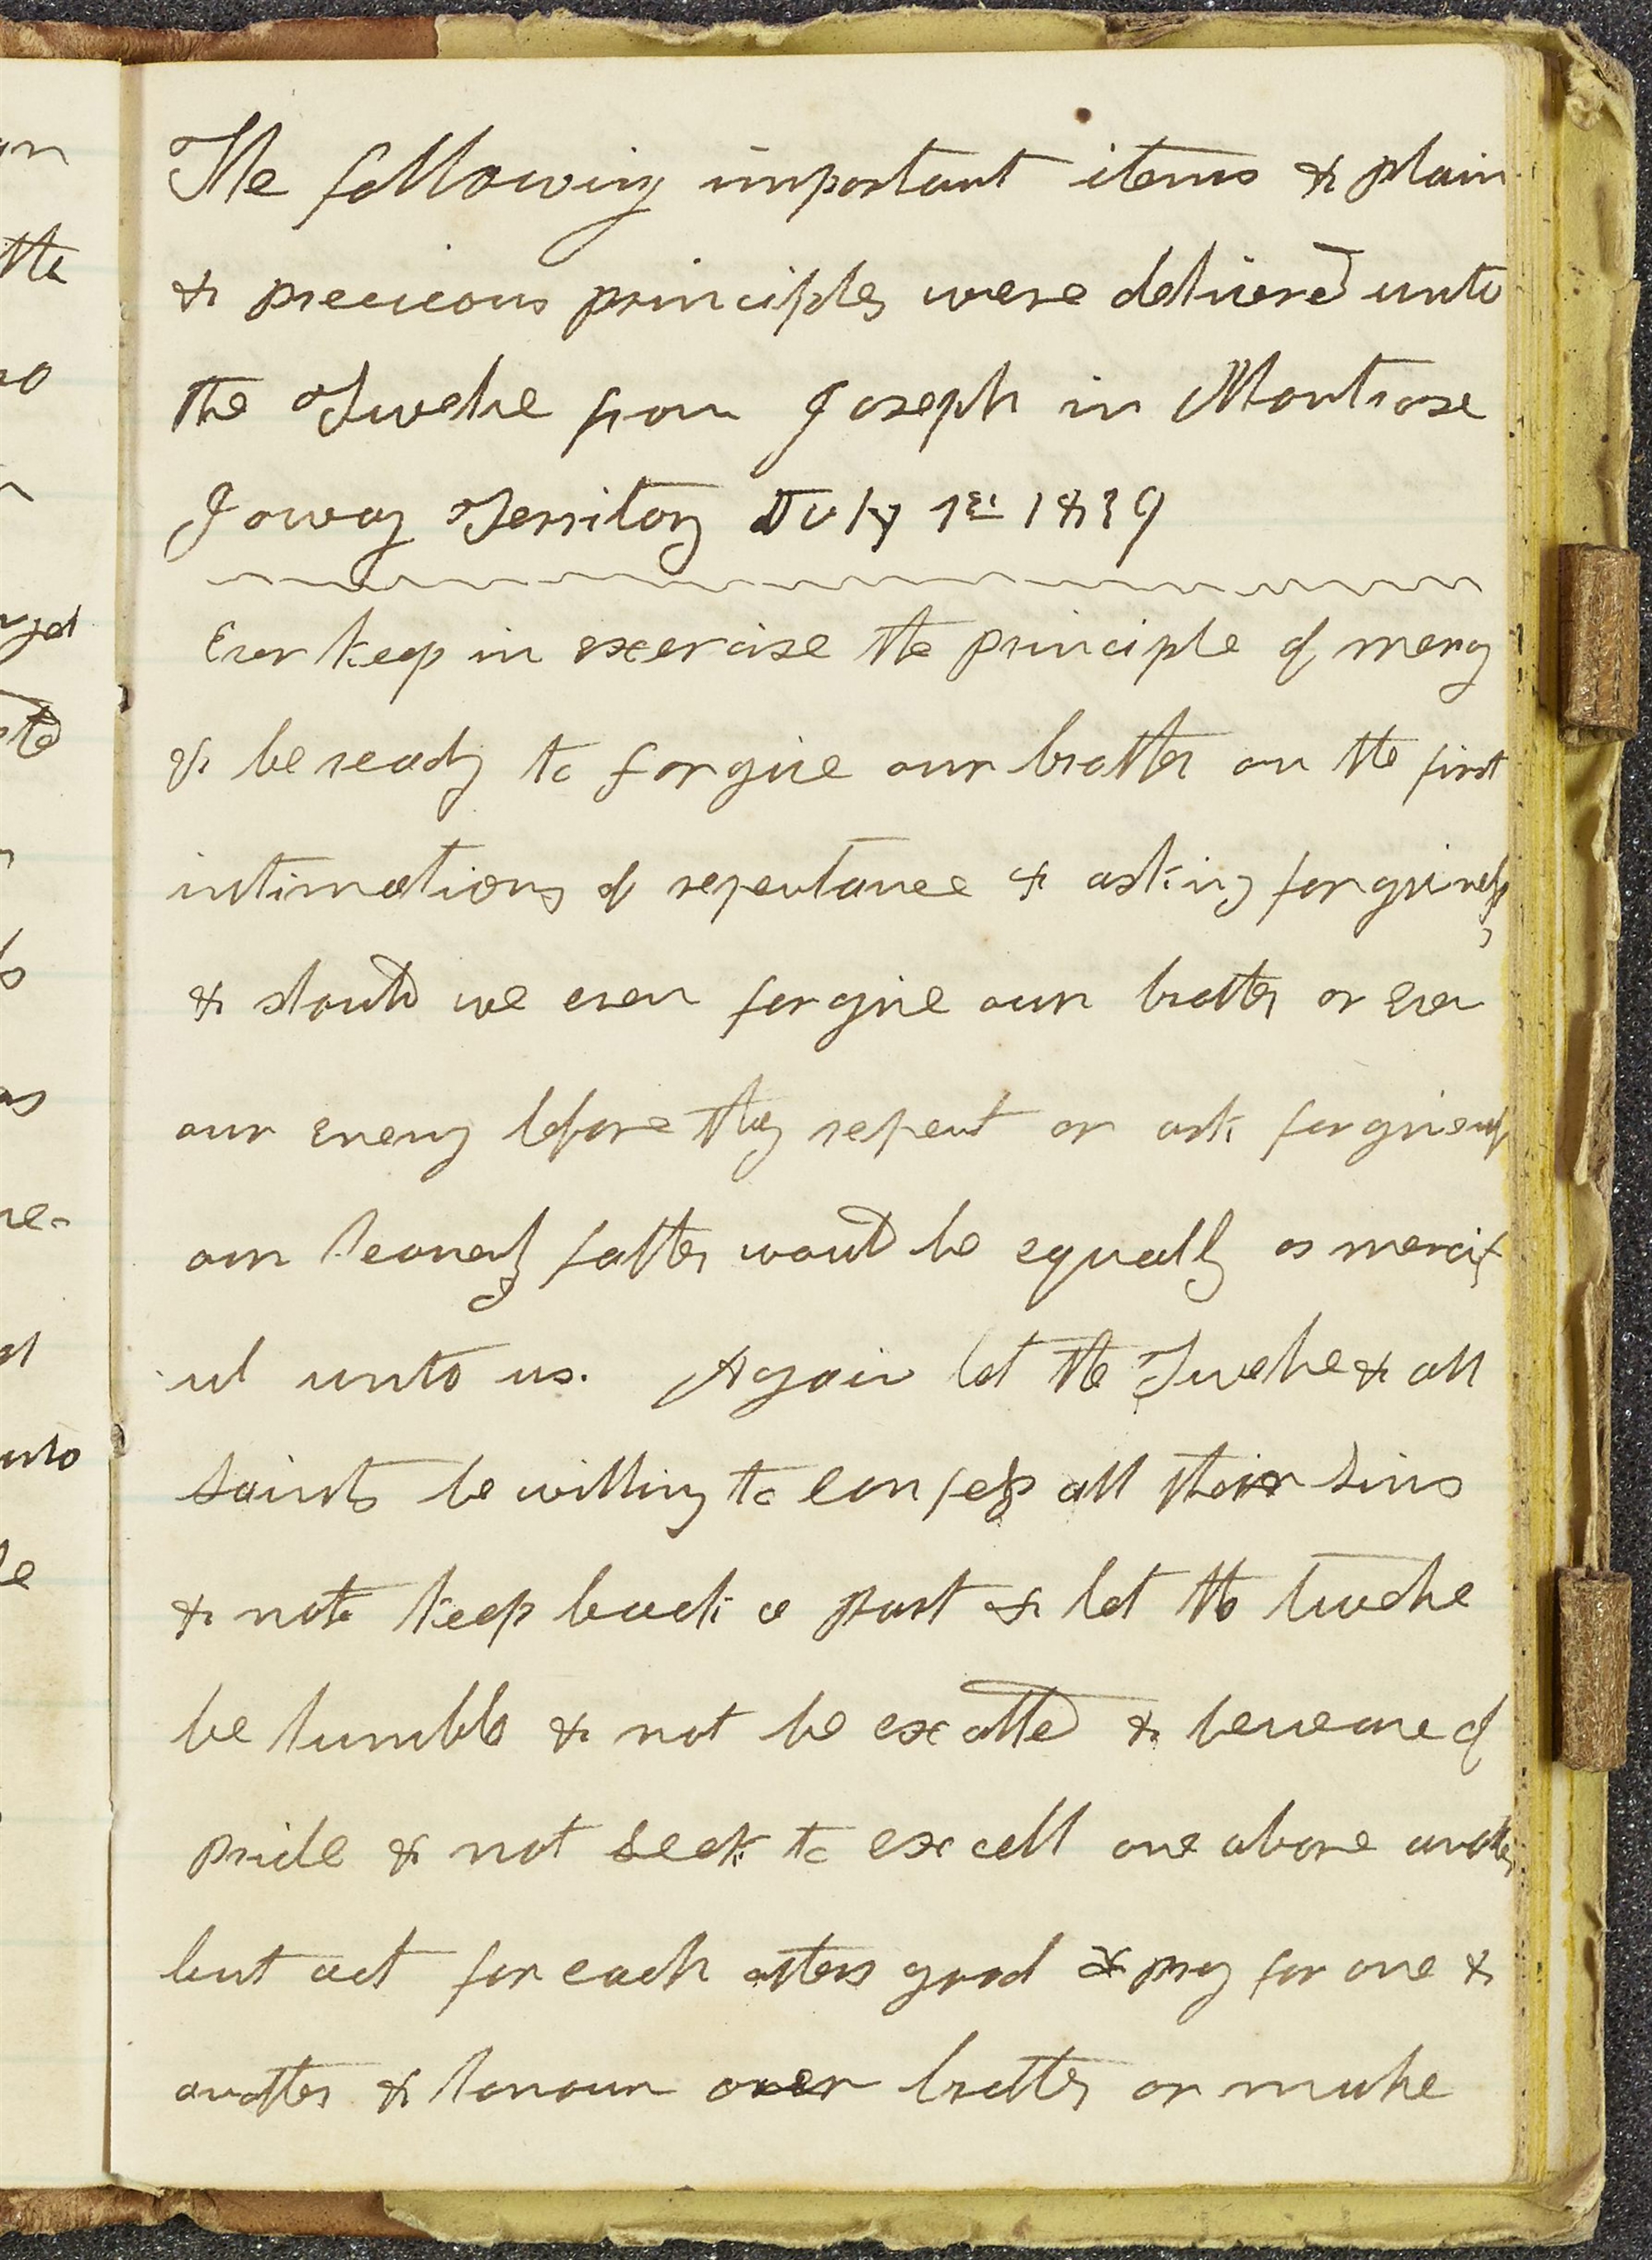 The following important items & plain
& precicous principles were delivered unto
the Twelve from Joseph in Montrose
Joway Territory July 1st 1839
Ever keep in exercise the principle of mercy
& be ready to forgive our brother on the first
intimations of repentance & asking forgiveness
& should we even forgive our brother or even
our enemy before they repent or ask forgiveness
our heavenly father would be equally as mercif
ul unto us. Again let the Twelve & all
saints be willing to confess all their sins
& not keep back a part & let the twelve
be humble & not be exalted & beware of
pride & not seek to excell one above another
but act for each others good & pray for one &
another & honour over brother or make